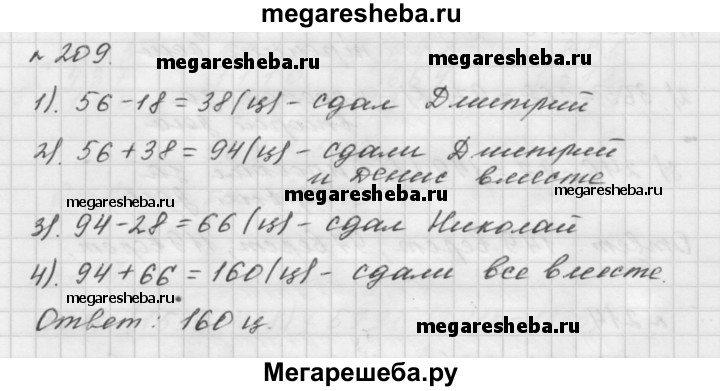 megaresheba.ru
№ 209.
megaresheba.ru megaresheba.ru
1). 56 - 18 = 38(ц) - сдал Дмитрий
2). 56 + 38 = 94(ц) - сдали Дмитрий
и Денис вместе
megaresheba.ru megaresheba.ru megaresheba.ru
3). 94 - 28 = 66 (ц) - сдал Николай
4). 94 + 66 = 160(ц) - сдали все вместе.
megaresheba.ru
Ответ: 160 ц.
megaresheba.ru
Мегарешеба.ру